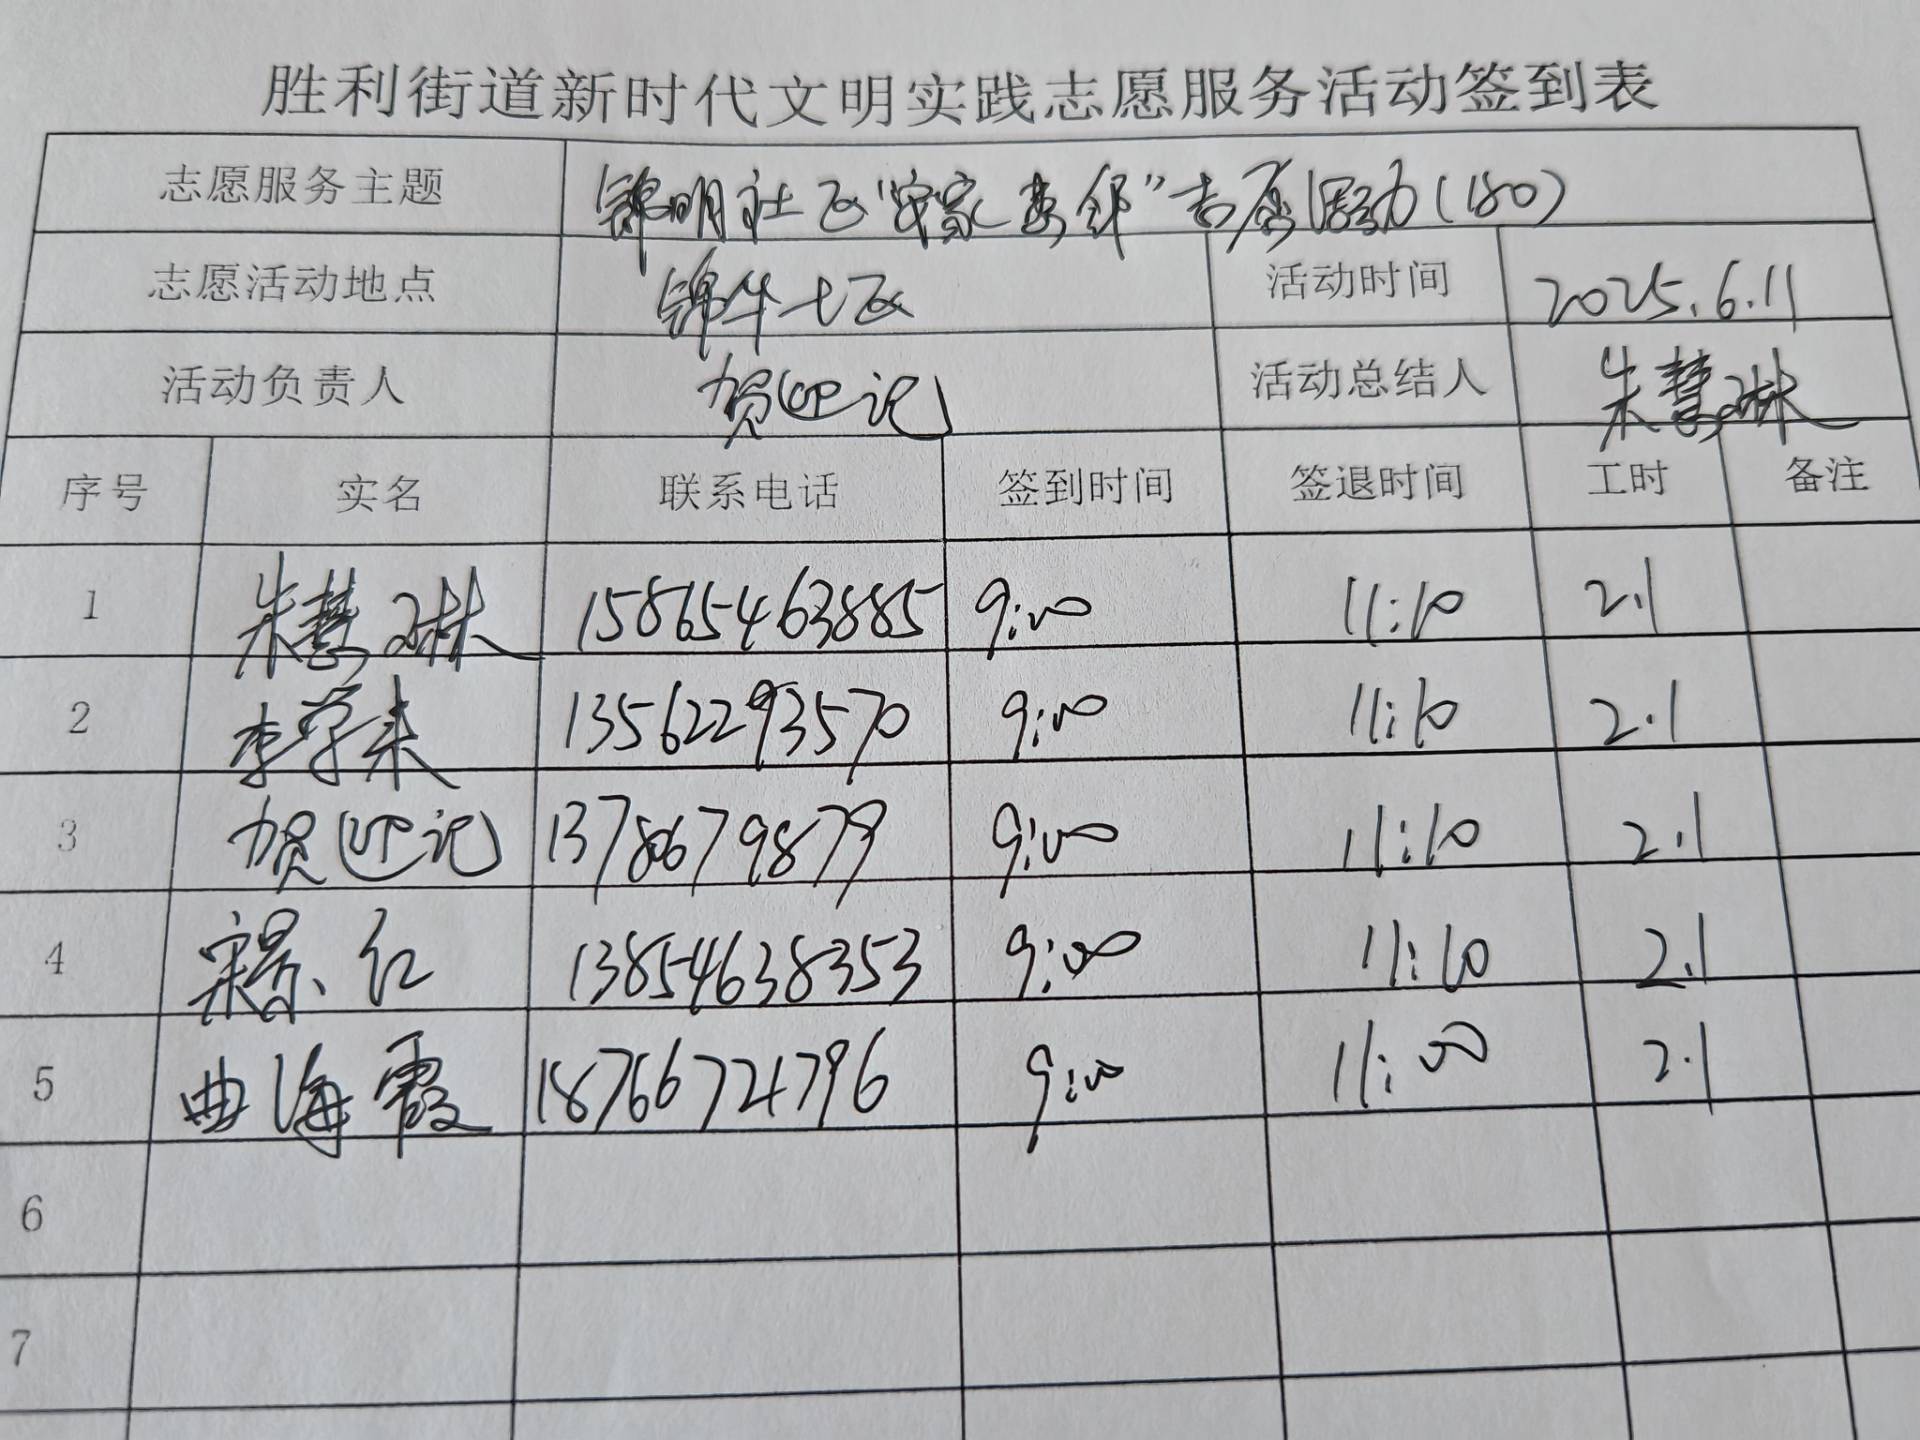 胜利街道新时代文明实践志愿服务活动签到表
志愿服务主题 锦明社区“安家 " 志愿活动(180)
志愿活动地点 锦华七区 活动时间 2025.6.11
活动负责人 贺迎记 活动总结人 朱慧琳
序号 实名 联系电话 签到时间 签退时间 工时 备注
1 朱慧琳 15865463885 9:00 11:10 2.1
2 李学来 13562293570 9:00 11:10 2.1
3 贺迎记 13780679879 9:00 11:10 2.1
4 宋景红 13854638353 9:00 11:10 2.1
5 曲海霞 18766724796 9:00 11:00 2.1
6
7